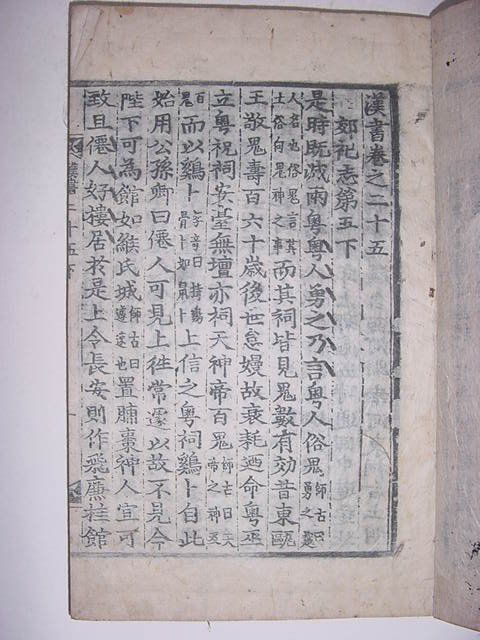 漢書卷之二十五
郊祀志第五下
是時既滅兩粤粤人勇之乃言粤人俗鬼師古曰勇之越
人名也俗鬼言其土俗尚鬼神之事而其祠皆見鬼數有効昔東甌
王敬鬼壽百六十歲後世怠嫚故衰耗廼命粤巫
立粤祝祠安臺無壇亦祠天神帝百鬼師古曰天帝之神及
百鬼而以鷄卜李奇曰持鷄骨卜如鼠卜上信之粤祠鷄卜自此
始用公孫卿曰僊人可見上徃常遽以故不見今
陛下可為館如緱氏城師古曰遽速也置脯棗神人宜可
致且僊人好樓居於是上令長安則作飛廉桂館
漢書二十五下